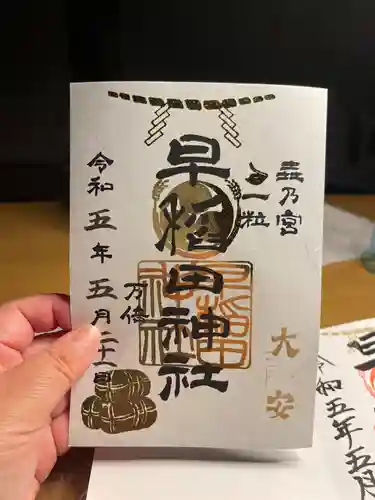 垚乃宮
一粒
万倍
早稲田神社
大安
令和五年五月二十一日
令和五年五月